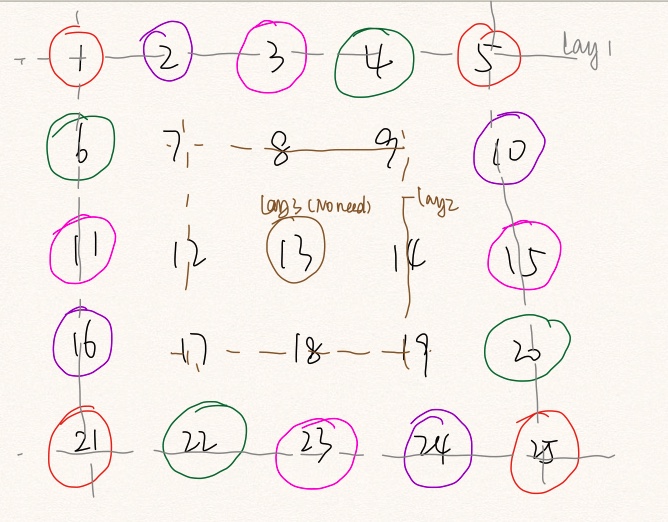 1 2 3 4 5 Lay1
6 7 8 9 10
Lay3 (No need) Lay2
11 12 13 14 15
16 17 18 19 20
21 22 23 24 25